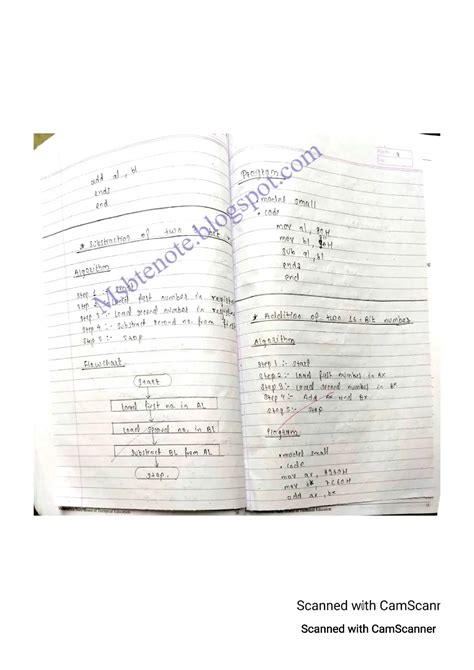 add al, bl
ends
end
* Substraction of two
Algorithm
Step 1 :-
Step 2 :- Load first number in register
Step 3 :- Load second number in register
Step 4 :- Substract second no. from first
Step 5 :- Stop
Flowchart
Start
Load first no. in AL
Load second no. in BL
Substract BL from AL
Stop.
Program
.model small
.code
mov al,
mov bl,
sub al, bl
ends
end
* Addition of two 16-Bit number
Algorithm
Step 1 :- Start
Step 2 :- Load first number in Ax
Step 3 :- Load second number in Bx
Step 4 :- Add Ax and Bx
Step 5 :- Stop
Program
.model small
.code
mov ax,
mov 7C60H
add ax, bx
Msbtenote.blogspot.com
Scanned with CamScanr
Scanned with CamScanner